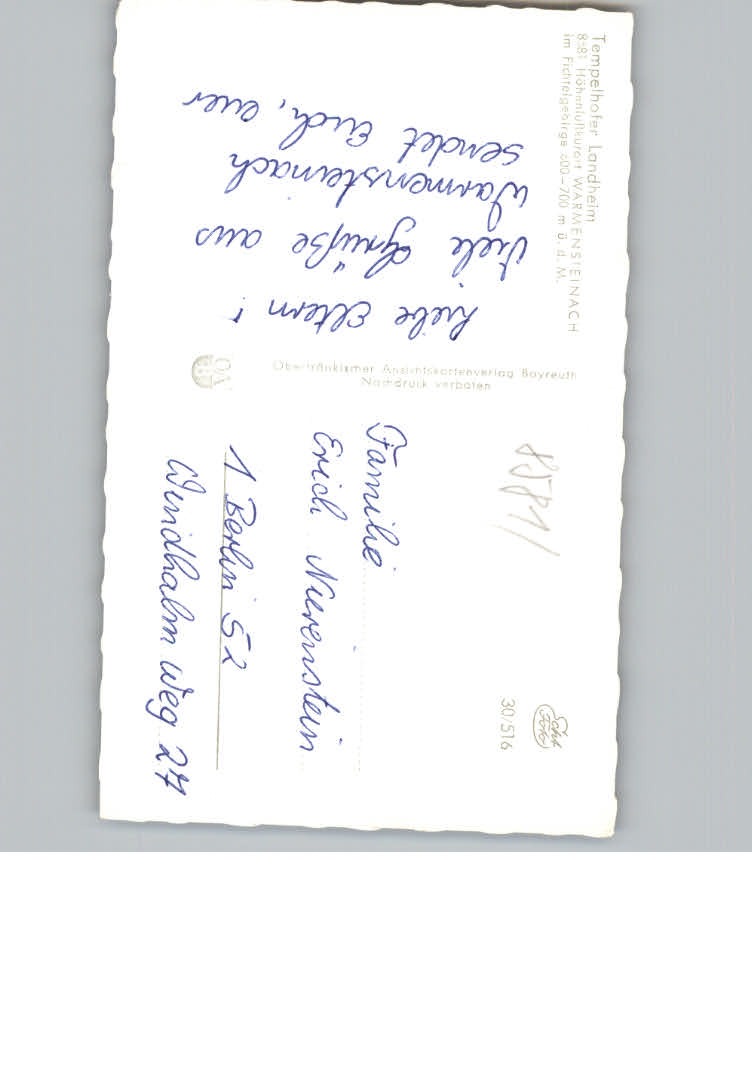 Tempelhofer Landheim
8581 Höhenluftkurort WARMENSTEINACH
im Fichtelgebirge 600–700 m ü. d. M.
Liebe Eltern!
Viele Grüße aus
Warmensteinach
sendet Euch, euer
Oberfränkischer Ansichtskartenverlag Bayreuth
Nachdruck verboten
OAV
8581/
Echt
Foto
30/516
Familie
Erich Nürenstein
1 Berlin 52
Windhalm Weg 27